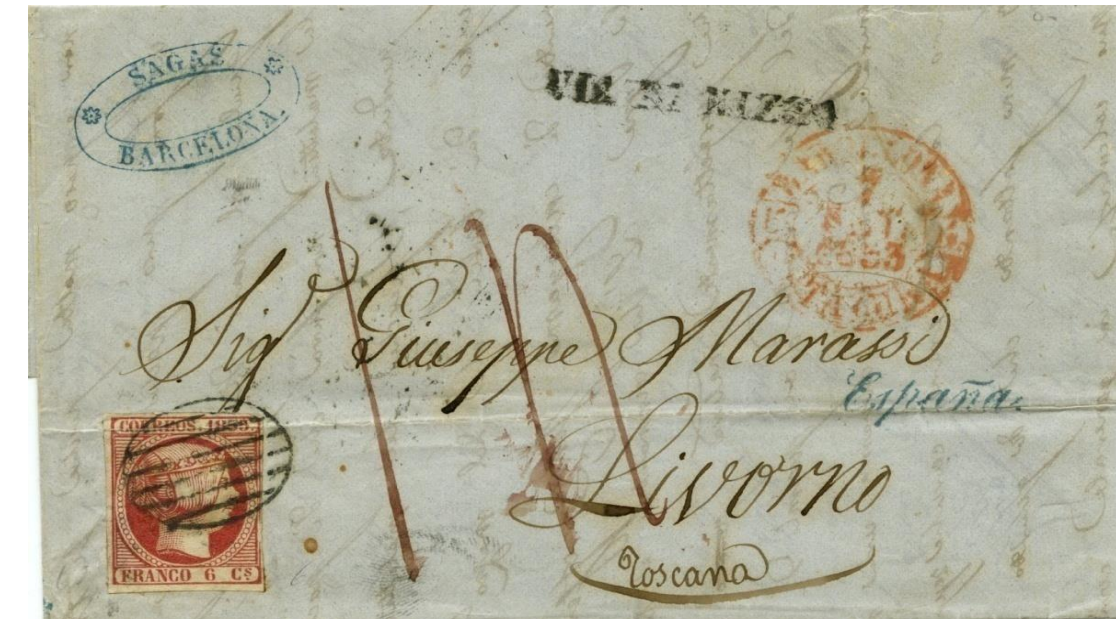 SAGAS
BARCELONA.
VIA DI NIZZA
7
1853
Sigr Giuseppe Marassi
España.
Livorno
Toscana
CORREOS. 1852
FRANCO 6 Cs